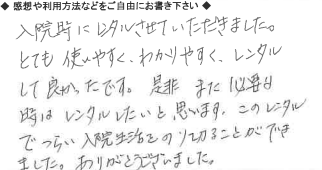 ◆ 感想や利用方法などをご自由にお書き下さい ◆
入院時にレンタルさせていただきました。
とても 使いやすく、わかりやすく、レンタル
して 良かったです。 是非 また 必要な
時は レンタルしたいと 思います。 このレンタル
で つらい 入院生活をのりきることができ
ました。 ありがとうございました。